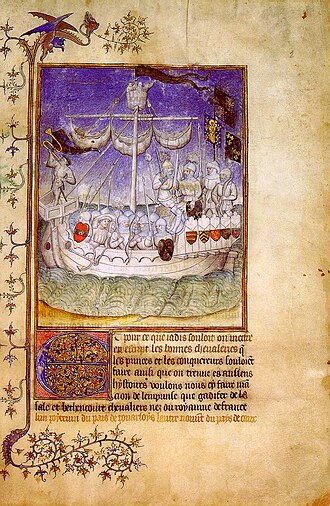 Et pour ce que iadis souloit on mettre
en escript les bonnes cheualeries q̄
les princes et les conquereurs souloiēt
faire ainsi que on treuue es anciens
hystoires voulons nous cy faire mā
cion de lemprinse que gadifer de la
sale et bethencourt cheualiers nez du royaume de france
lun poyteuin du pais de touarsoys lautre normēt du pais de caux